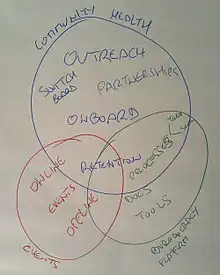 COMMUNITY HEALTH
OUTREACH
SWITCH
BOARD
PARTNERSHIPS
ONBOARD
RETENTION
PROCESSES
DOCS
TOOLS
ONLINE
EVENTS
OFFLINE
EVENTS